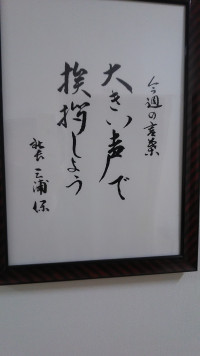 今週の言葉
大きい声で
挨拶しよう
社長 三浦 保